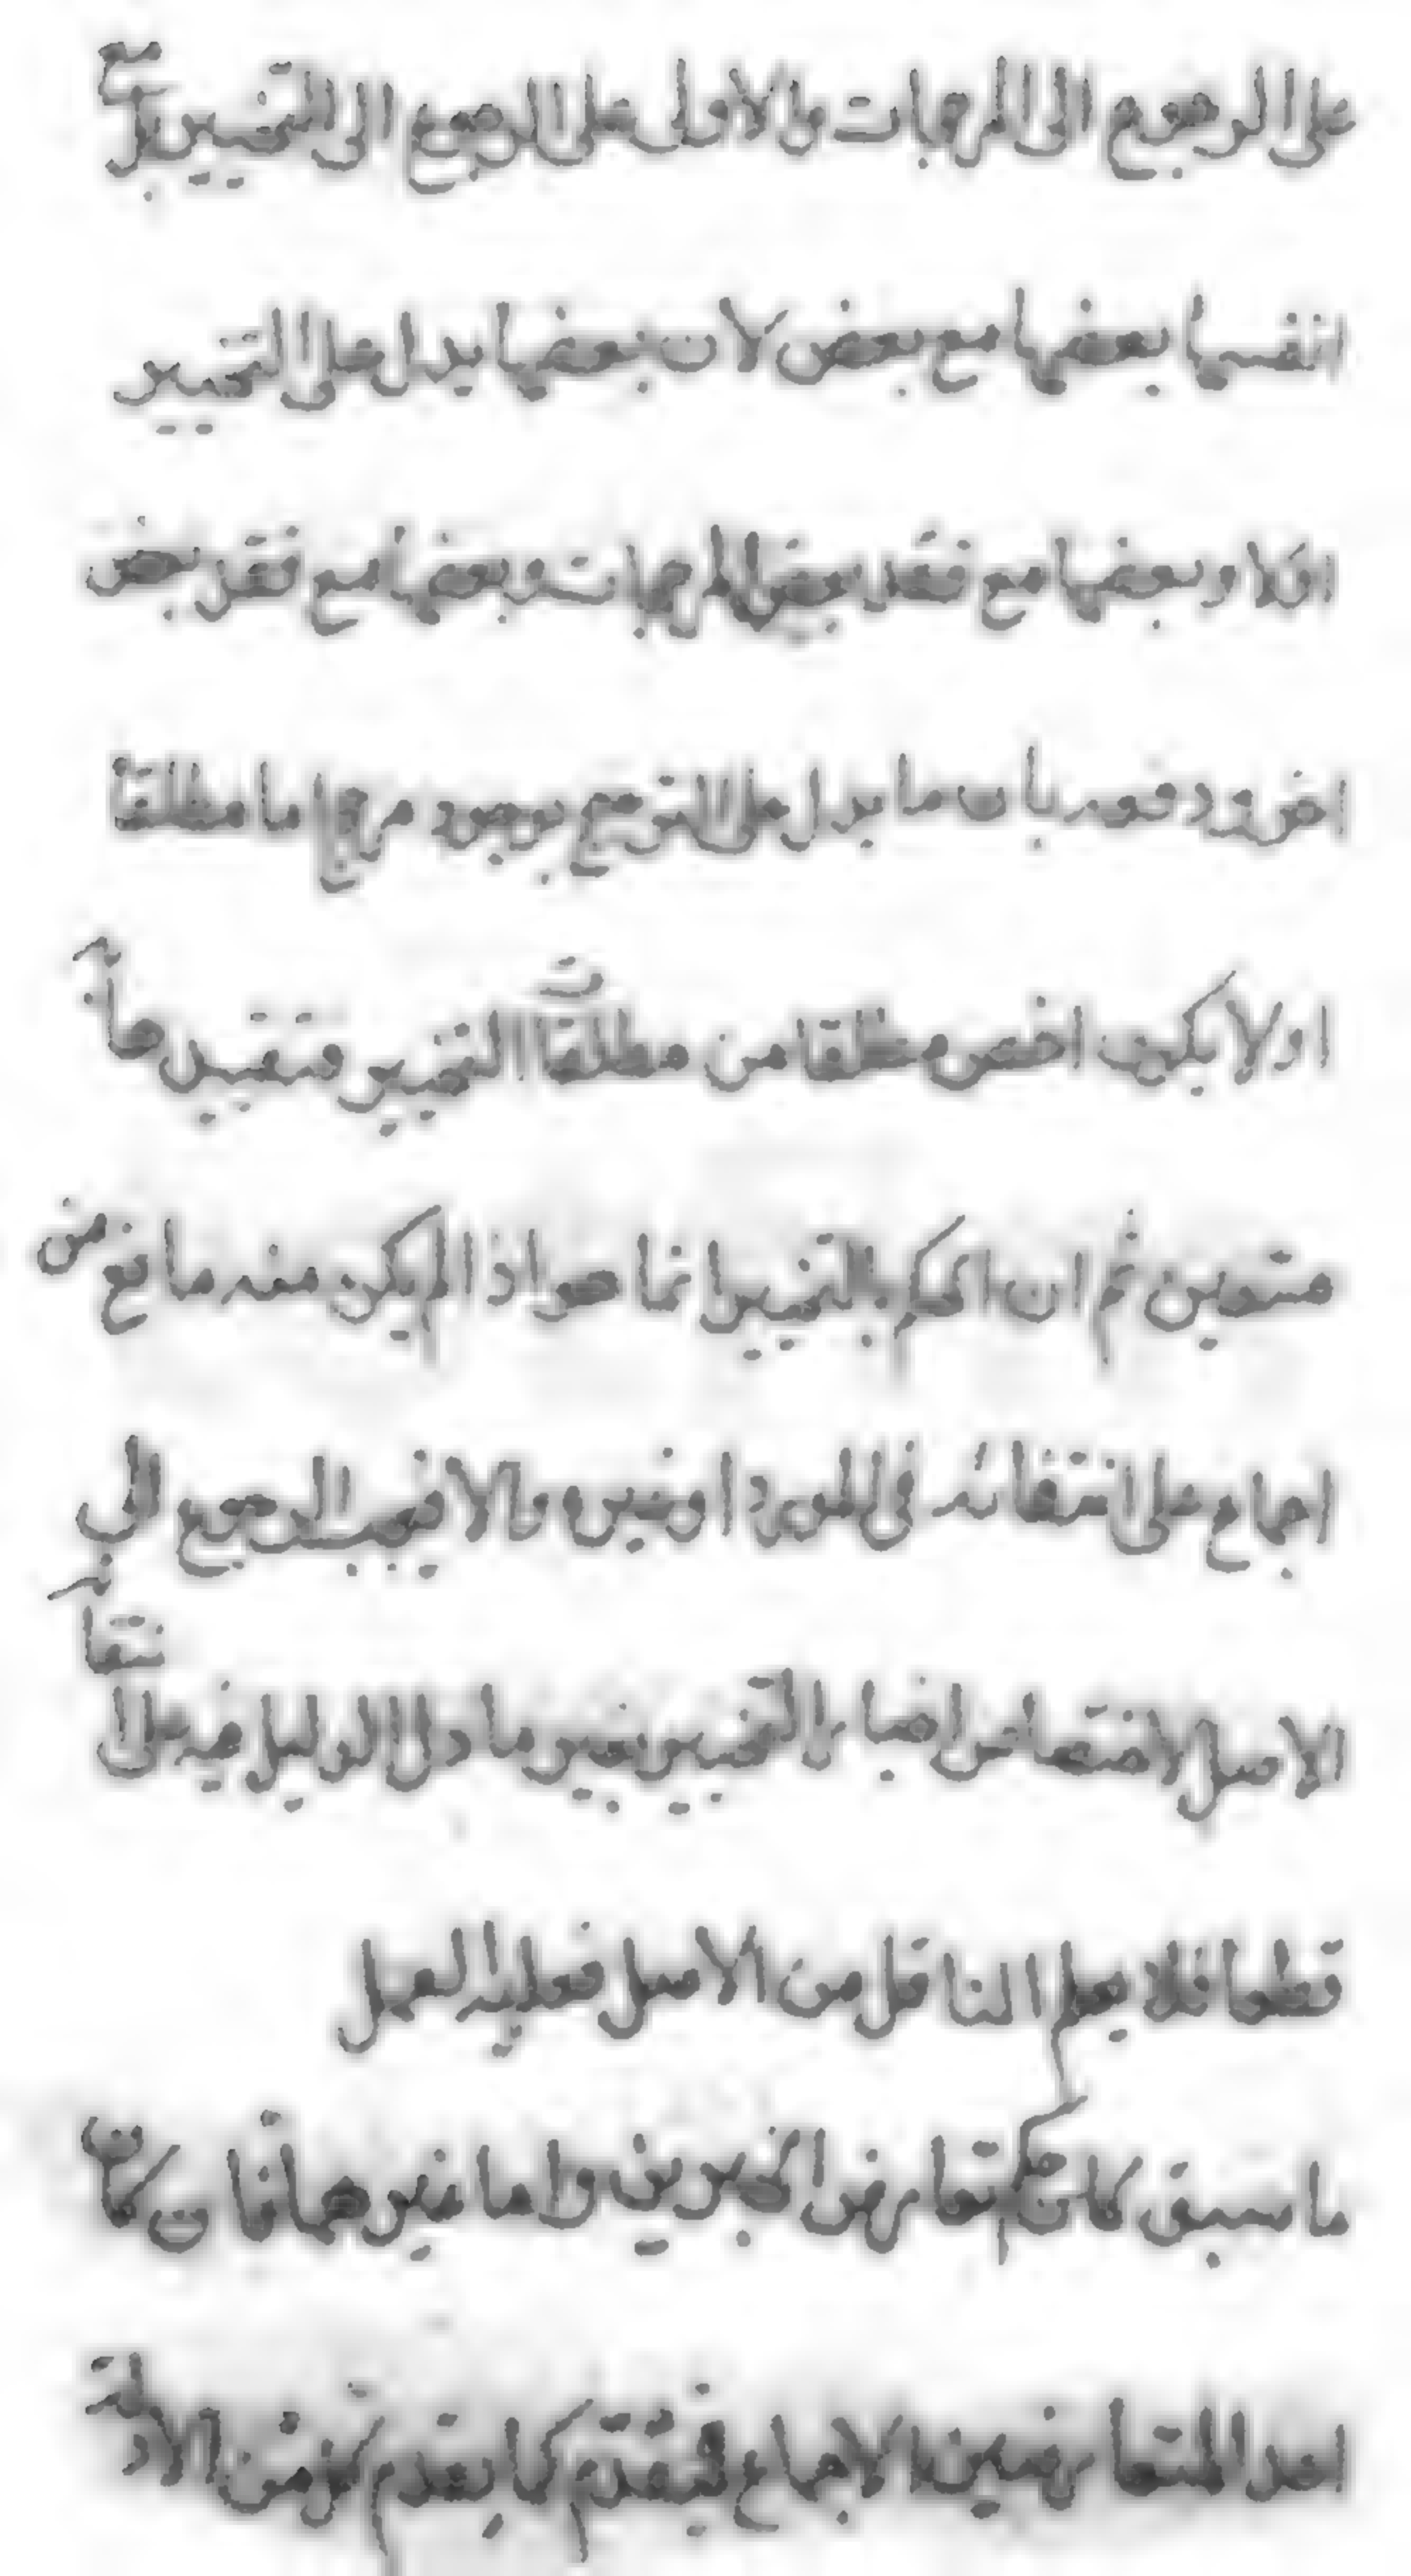 على الرجوع الى المرجحات والاولى على الرجوع الى التخيير بل مع
انفسها بعضها مع بعض لان بعضها يدل على التخيير
اولا وبعضها مع فقد بعض المرجحات وبعضها مع فقد بعض
اخر ودفعه بان ما يدل على الترجيح بوجود مرجح اما مطلقا
اولا يكون اخص مطلقا من مطلقات التخيير فتقيد بها
فتوهن ثم ان الحكم بالتخيير انما هو اذا لم يكن منه مانع من
اجماع على انتفائه في المورد او غيره والا فيجب الرجوع الى
الاصل لاختصاص اخبار التخيير بغير ما دل الدليل فيه على انتفائه
قطعا فلا يعلم الناقل من الاصل فعليه العمل
ما سبق كان حكم تعارض الخبرين واما غيرهما فان كان
احد المتعارضين الاجماع فيقدم كما يقدم كل من الادلة